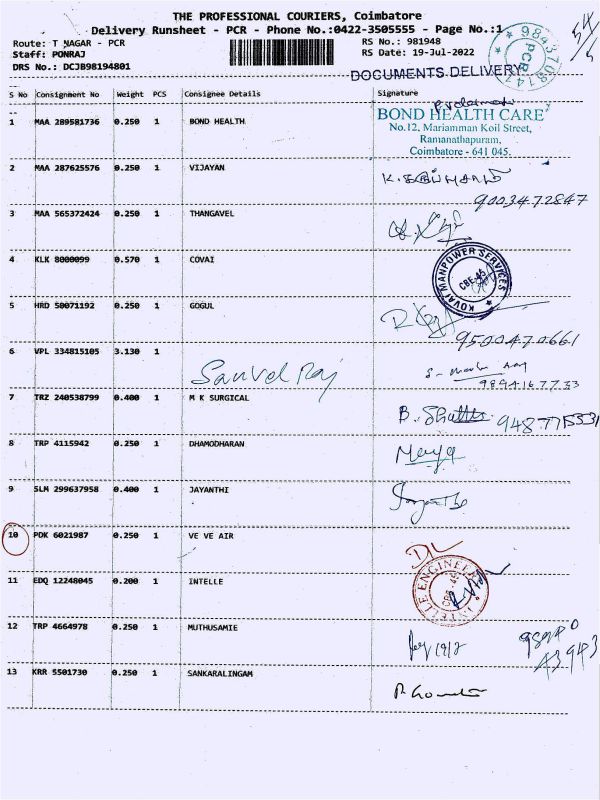 THE PROFESSIONAL COURIERS, Coimbatore
Delivery Runsheet - PCR - Phone No.:0422-3505555 - Page No.:1
Route: T NAGAR - PCR
RS No.: 981948
Staff: PONRAJ
RS Date: 19-Jul-2022
DRS No.: DCJB98194801
DOCUMENTS DELIVERY
9843708147
PCR
54/5
S No Consignment No Weight PCS Consignee Details Signature
1 MAA 289581736 0.250 1 BOND HEALTH
BOND HEALTH CARE
No.12, Mariamman Koil Street,
Ramanathapuram,
Coimbatore - 641 045.
2 MAA 287625576 0.250 1 VIJAYAN
9003472847
3 MAA 565372424 0.250 1 THANGAVEL
4 KLK 8000099 0.570 1 COVAI
KOVAI MANPOWER SERVICES
CBE-45
5 HRD 50071192 0.250 1 GOGUL
9500470661
6 VPL 334815105 3.130 1
Sanvel Raj
9894167733
7 TRZ 240538799 0.400 1 M K SURGICAL
8 TRP 4115942 0.250 1 DHAMODHARAN
9 SLM 299637958 0.400 1 JAYANTHI
10 PDK 6021987 0.250 1 VE VE AIR
11 EDQ 12248045 0.200 1 INTELLE
INTELLE ENGINEER
CBE - 45
12 TRP 4664978 0.250 1 MUTHUSAMIE
13 KRR 5501730 0.250 1 SANKARALINGAM